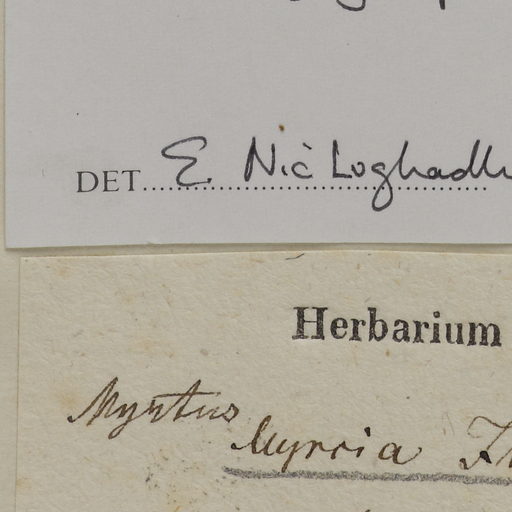 DET. E Nic Loghadh
Herbarium
Myrtus
Myrcia